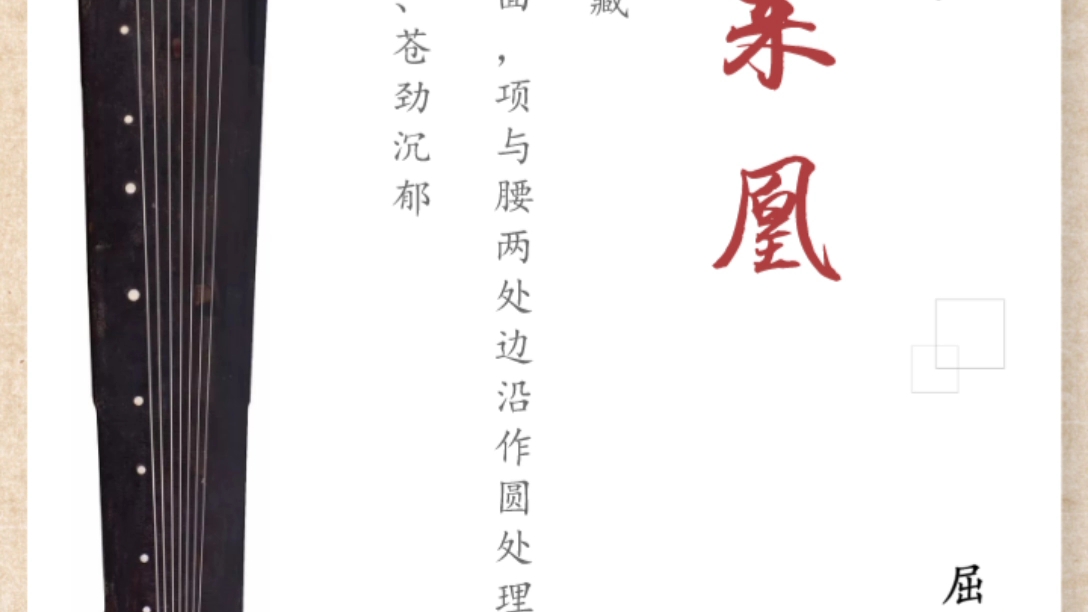 屈
来凰
藏
面，项与腰两处边沿作圆处理
、苍劲沉郁